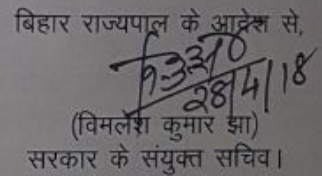 बिहार राज्यपाल के आदेश से,
28/4/18
(विमलेश कुमार झा)
सरकार के संयुक्त सचिव।